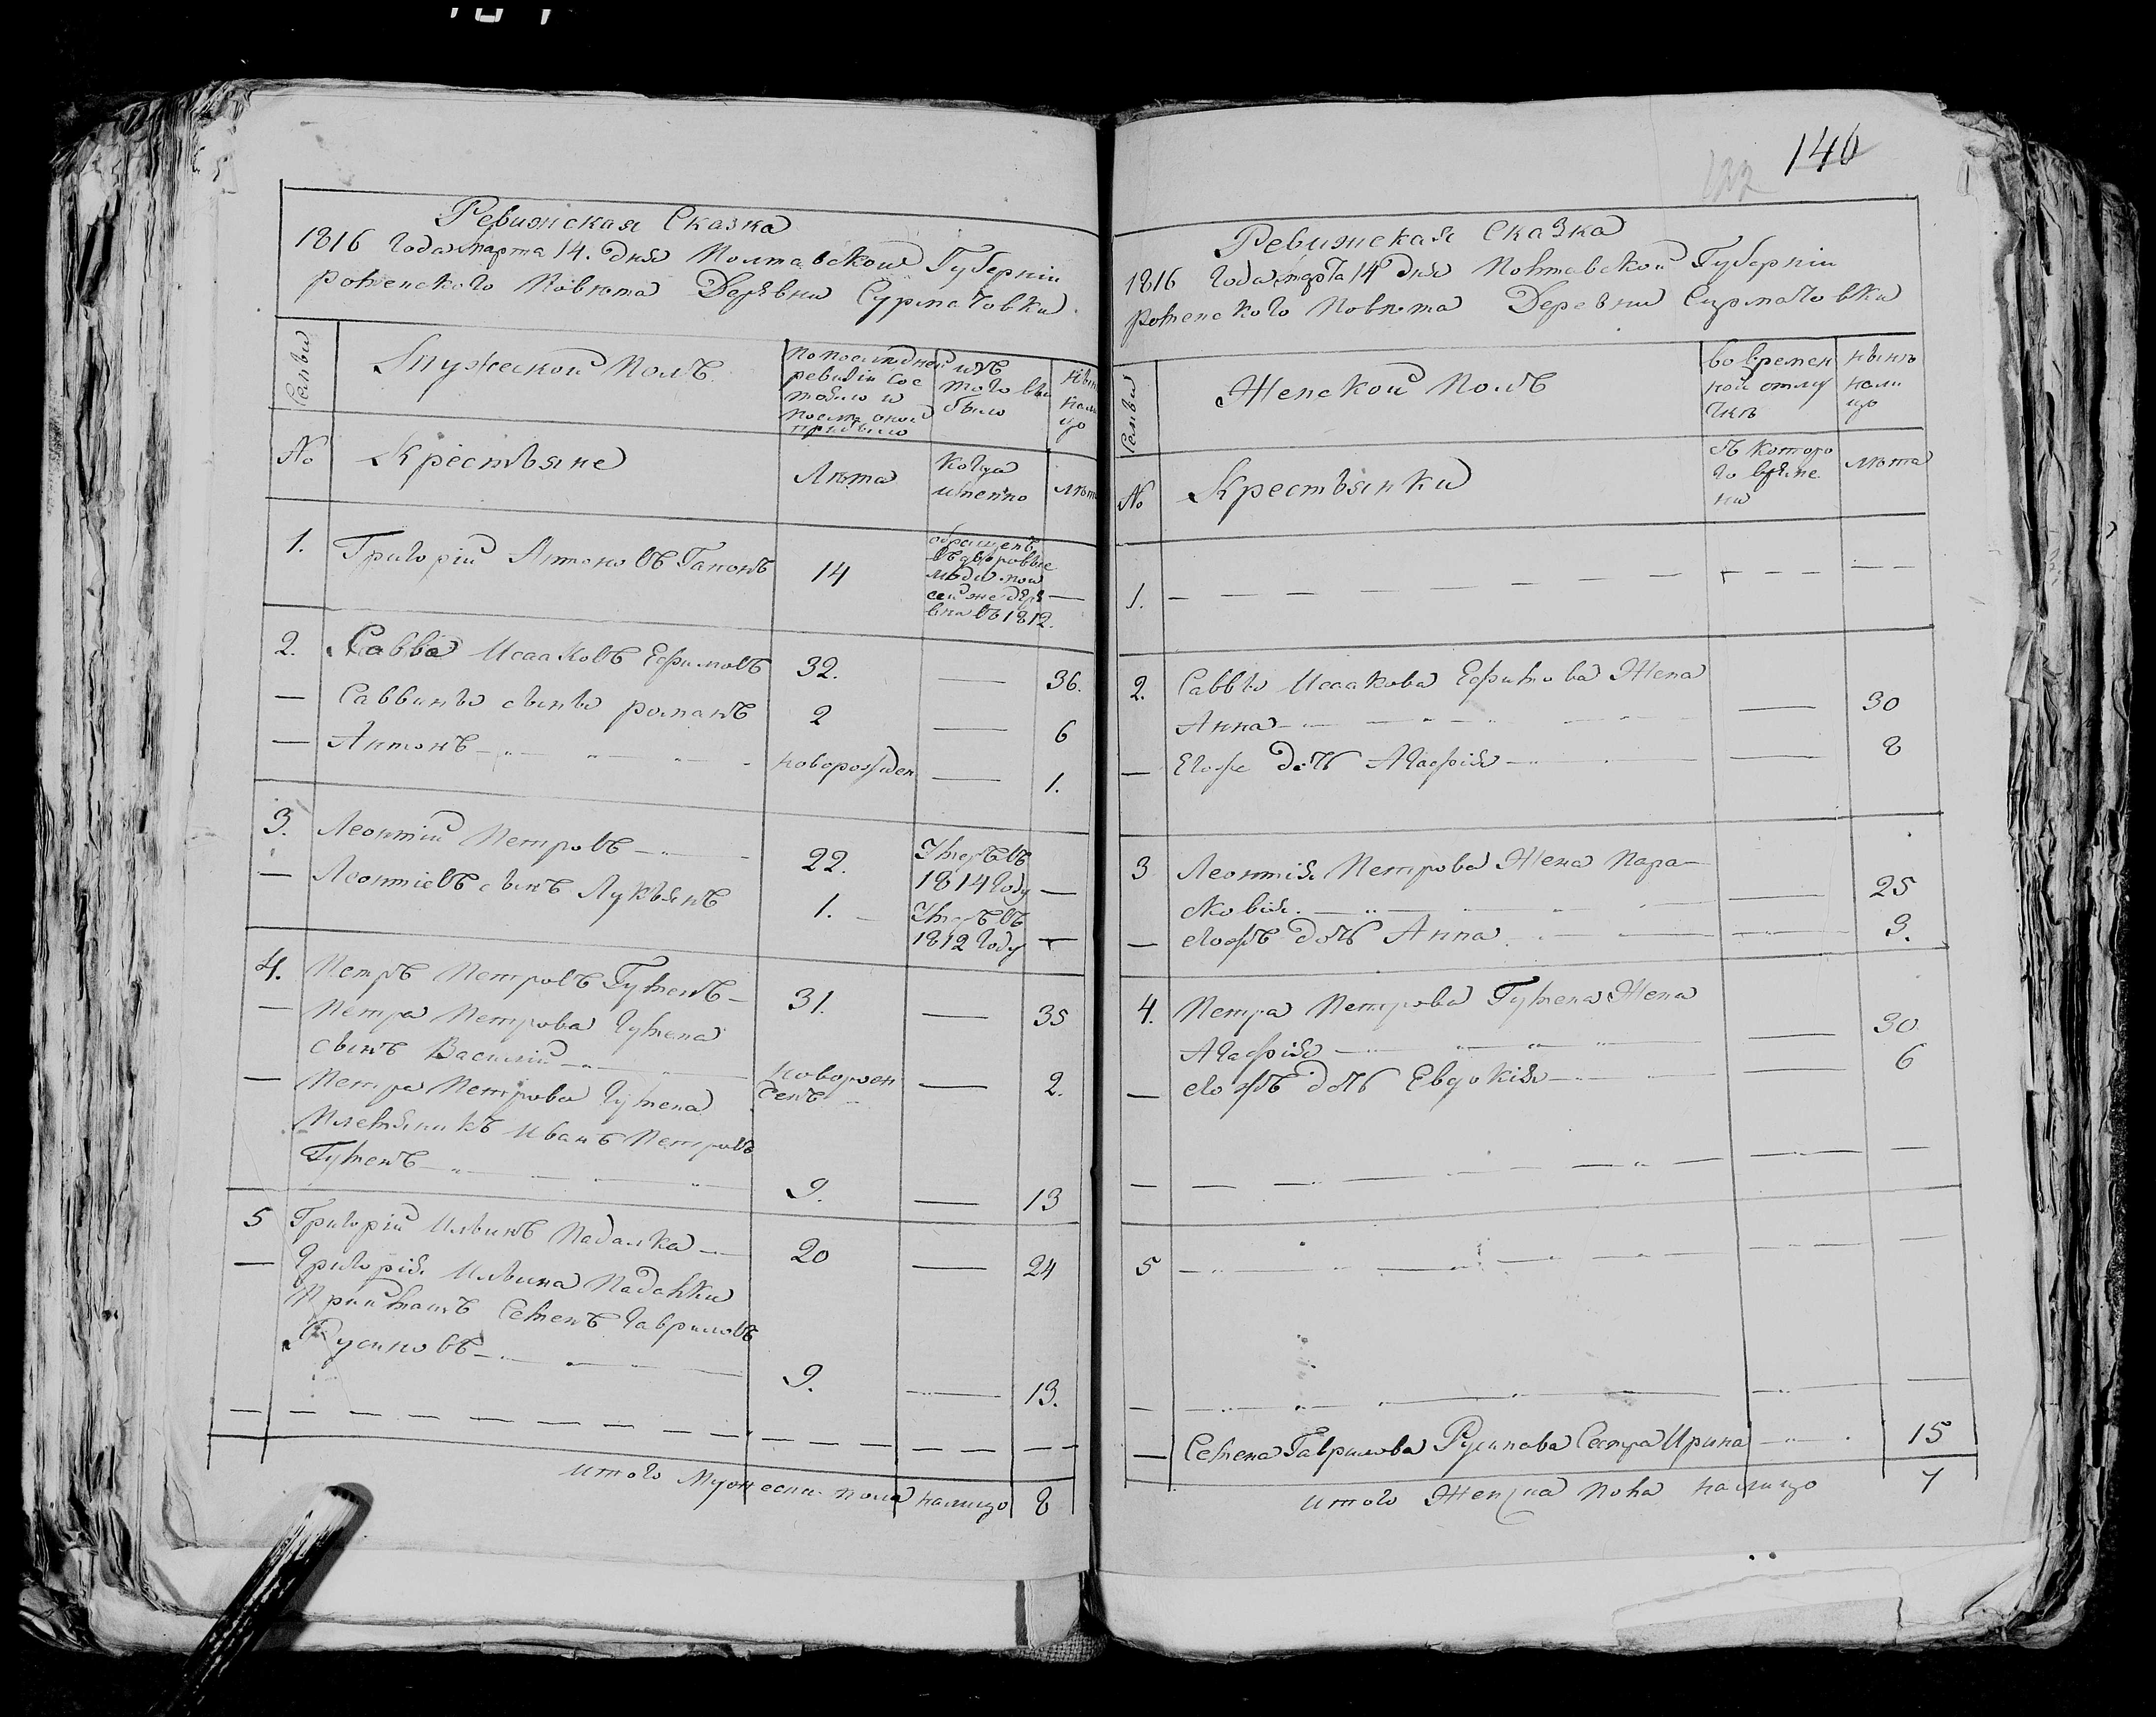 Ревижская Сказка
1816 Года марта 14. дня Полтавской Губерніи
роменского Повѣта Деревни Сурмачовки
Семьи
Мужеской Полъ.
по последней
ревизіи сос
тояло и
после оной
прибыло
изъ
того вы
было
Нынѣ
нали
цо
No
Крестьяне
Лѣта
когда
имянно
лѣта
1. Григорій Антоновъ Гапонъ 14
обращенъ
въ дворовые
люди той
сей же дере
вни въ 1812. —
2. Савва Исааковъ Ефимовъ 32. — 36.
— Саввинъ сынъ романъ 2 — 6
— Антонъ новорожден — 1.
3. Леонтій Петровъ 22. Умеръ въ
1814 Году —
— Леонтіевъ сынъ Лукьянъ 1. Умеръ въ
1812 Году —
4. Петръ Петровъ Гуменъ 31. — 35
— Петра Петрова Гумена
сынъ Василій новорож
денъ — 2.
— Петра Петрова Гумена
Племяникъ Иванъ Петровъ
Гуменъ 9. — 13
5 Григорій Ильинъ Падалка 20 — 24
— Григорія Ильина Падалки
Пріймашъ Семенъ Гавриловъ
Русиновъ 9. — 13.
итого Мужеска пола налицо 8
140
122
Ревижская Сказка
1816 Года марта 14 дня Полтавской Губерніи
роменского Повѣта Деревни Сурмачовки
Семьи
Женской Полъ
во времен
ной отлу
чкѣ
нынѣ
нали
цо
No
Крестьянки
съ которо
го време
ни
лѣта
1.
2. Саввы Исаакова Ефимова Жена
Анна — 30
— Егоже дочь Агафія — 8
3 Леонтія Петрова Жена Пара-
сковія. — 25
— егожъ дочь Анна — 3.
4. Петра Петрова Гумена Жена
Агафія — 30
— егожъ дочь Евдокія — 6
5
— Семена Гаврилова Русинова Сестра Ирина 15
итого Женска пола налицо 7